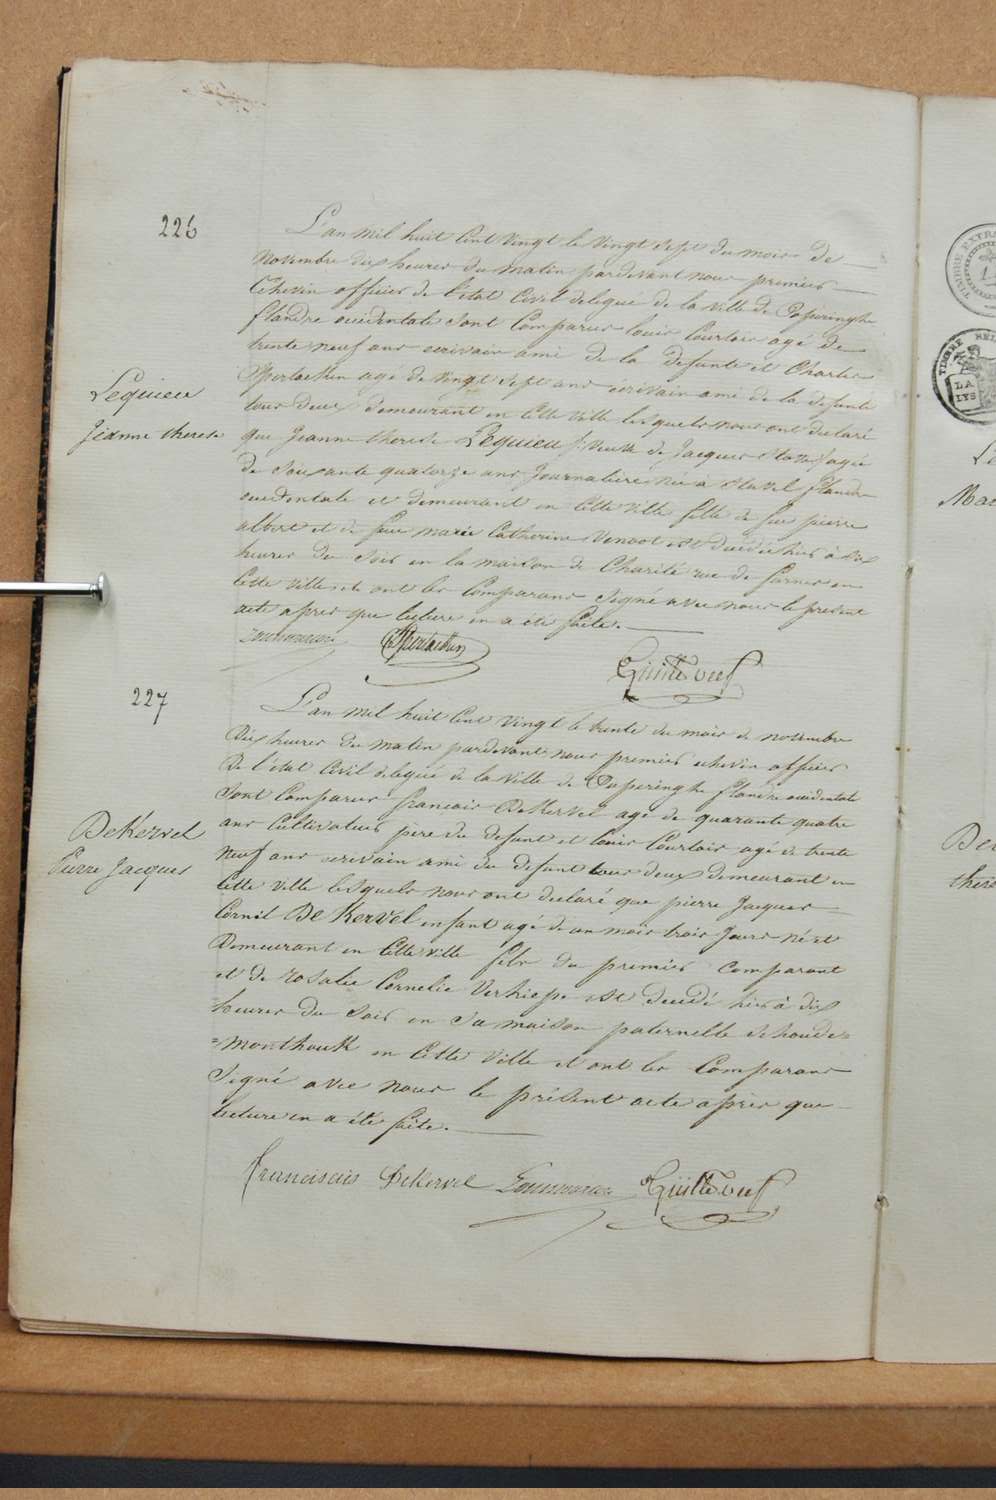 226
L'an mil huit Cent Vingt le Vingt Sept du mois de
Novembre dix heures du matin pardevant nous premier
Echevin officier de l'état Civil delegué de la Ville de Poperinghe
flandre occidentale Sont Comparus louis Courtois agé de
trente neuf ans ecrivain ami de la defunte et Charles
agé de Vingt Sept ans écrivain ami de la defunte
tous deux demeurant en Cette Ville lesquels nous ont declaré
Lequieu
Jeanne therese
que Jeanne therese Lequieu Veuve de Jacques agée
de Soixante quatorze ans Journaliere née a flandre
occidentale et demeurant en Cette Ville fille de feu pierre
albert et de feue marie Catherine est décédé hier à dix
heures du Soir en la maison de Charité rue de furnes en
Cette Ville et ont les Comparans Signé avec nous le présent
acte apres que lecture en a été faite.
227
L'an mil huit Cent Vingt le trente du mois de novembre
dix heures du matin pardevant nous premier echevin officier
De l'état Civil delegué de la Ville de Poperinghe flandre occidentale
Sont Comparus francois DeKervel agé de quarante quatre
ans Cultivateur père du defunt et louis Courtois agé de trente
neuf ans ecrivain ami du defunt tous deux demeurant en
DeKervel
Pierre Jacques
Cette Ville lesquels nous ont declaré que pierre Jacques
Cornil De Kervel enfant agé de un mois trois Jours né et
Demeurant en Cette Ville fils du premier comparant
et de rosalie Cornelie est decedé hier à dix
heures du Soir en Sa maison paternelle Schoude=
=monthouk en Cette Ville et ont les Comparans
Signé avec nous le présent acte après que
lecture en a été faite.
franciscus DeKervel
TIMBRE EXTRA
TIMBRE
LA
LYS